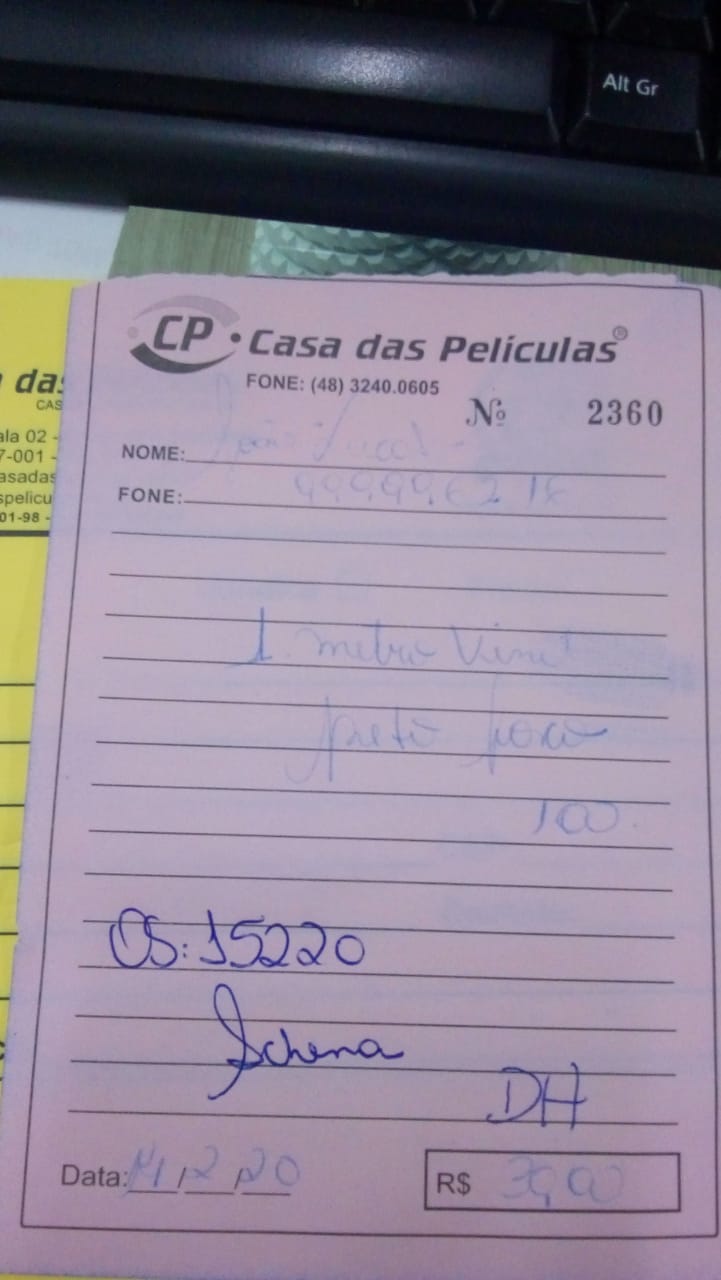 Alt Gr
CP · Casa das Películas®
FONE: (48) 3240.0605
Nº 2360
NOME:
FONE:
1. metro
preto
100.
OS: 15220
Schena
DH
Data: 14/2/20
R$ 30,00
das
CAS
ala 02 -
7-001 -
asadas
spelicu
01-98 -